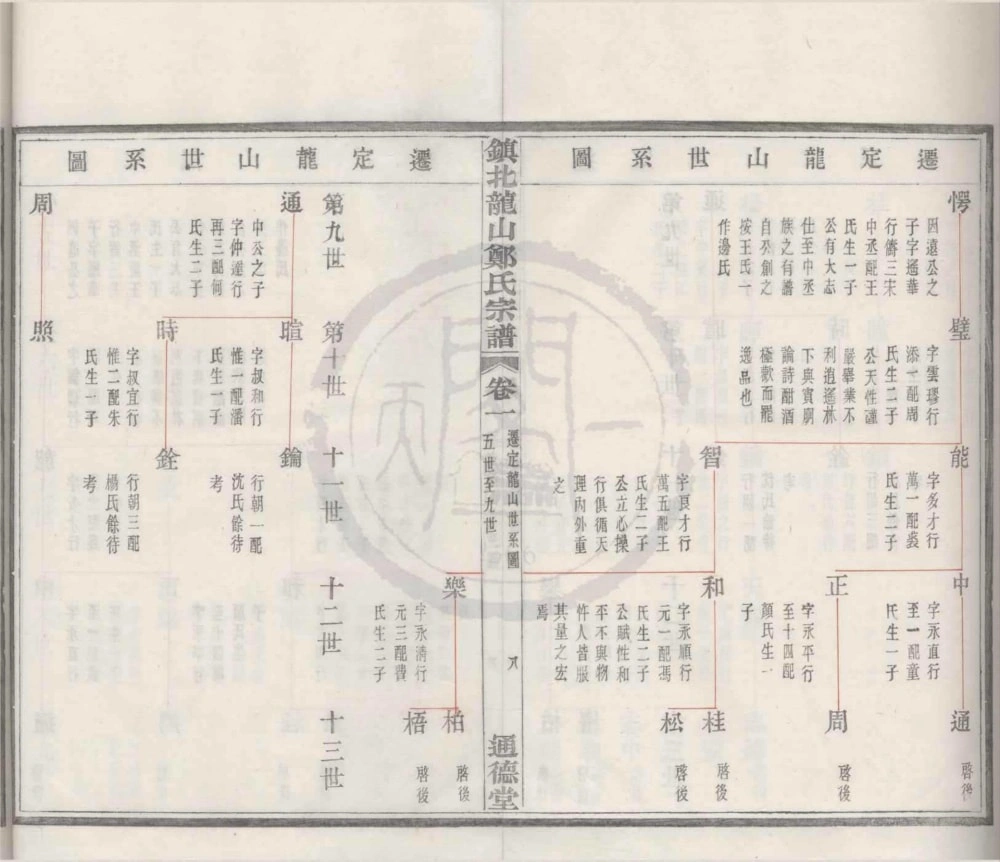 遷定龍山世系圖
愕
因遠公之
子字遜華
行儕三宋
中丞配王
氏生一子
公有大志
仕至中丞
族之有譜
自公創之
按王氏一
作邊氏
璧
字雲璆行
添一配周
氏生二子
公天性謹
嚴舉業不
利逍遙林
下與賓朋
論詩酣酒
極歡而罷
逸品也
能
字多才行
萬一配裘
氏生二子
智
字良才行
萬五配王
氏生二子
公立心操
行俱循天
理內外重
之
中
字永直行
至一配童
氏生一子
正
字永平行
至十四配
顏氏生一
子
和
字永順行
元一配馮
氏生二子
公賦性和
平不與物
忤人皆服
其量之宏
焉
通
啓後
周
啓後
桂
啓後
松
啓後
鎮北龍山鄭氏宗譜
卷一
遷定龍山世系圖
五世至九世
八
通德堂
遷定龍山世系圖
樂
字永淸行
元三配費
氏生二子
柏
啓後
梧
啓後
第九世
第十世
十一世
十二世
十三世
通
中公之子
字仲達行
再三配何
氏生二子
暄
字叔和行
惟一配潘
氏生一子
時
字叔宜行
惟二配朱
氏生一子
鑰
行朝一配
沈氏餘待
考
銓
行朝三配
楊氏餘待
考
周
照